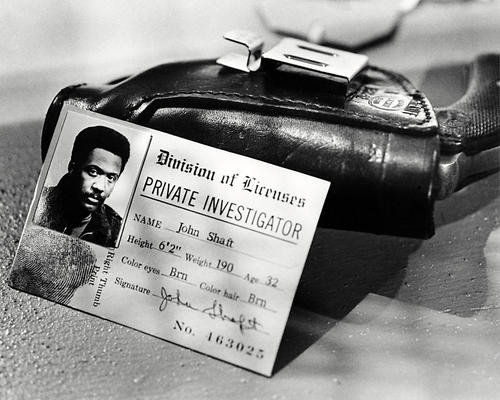 Division of Licenses
PRIVATE INVESTIGATOR
NAME John Shaft
Height 6'2" Weight 190 Age 32
Color eyes Brn Color hair Brn
Signature John Shaft
No. 463025
Right Thumb
Print